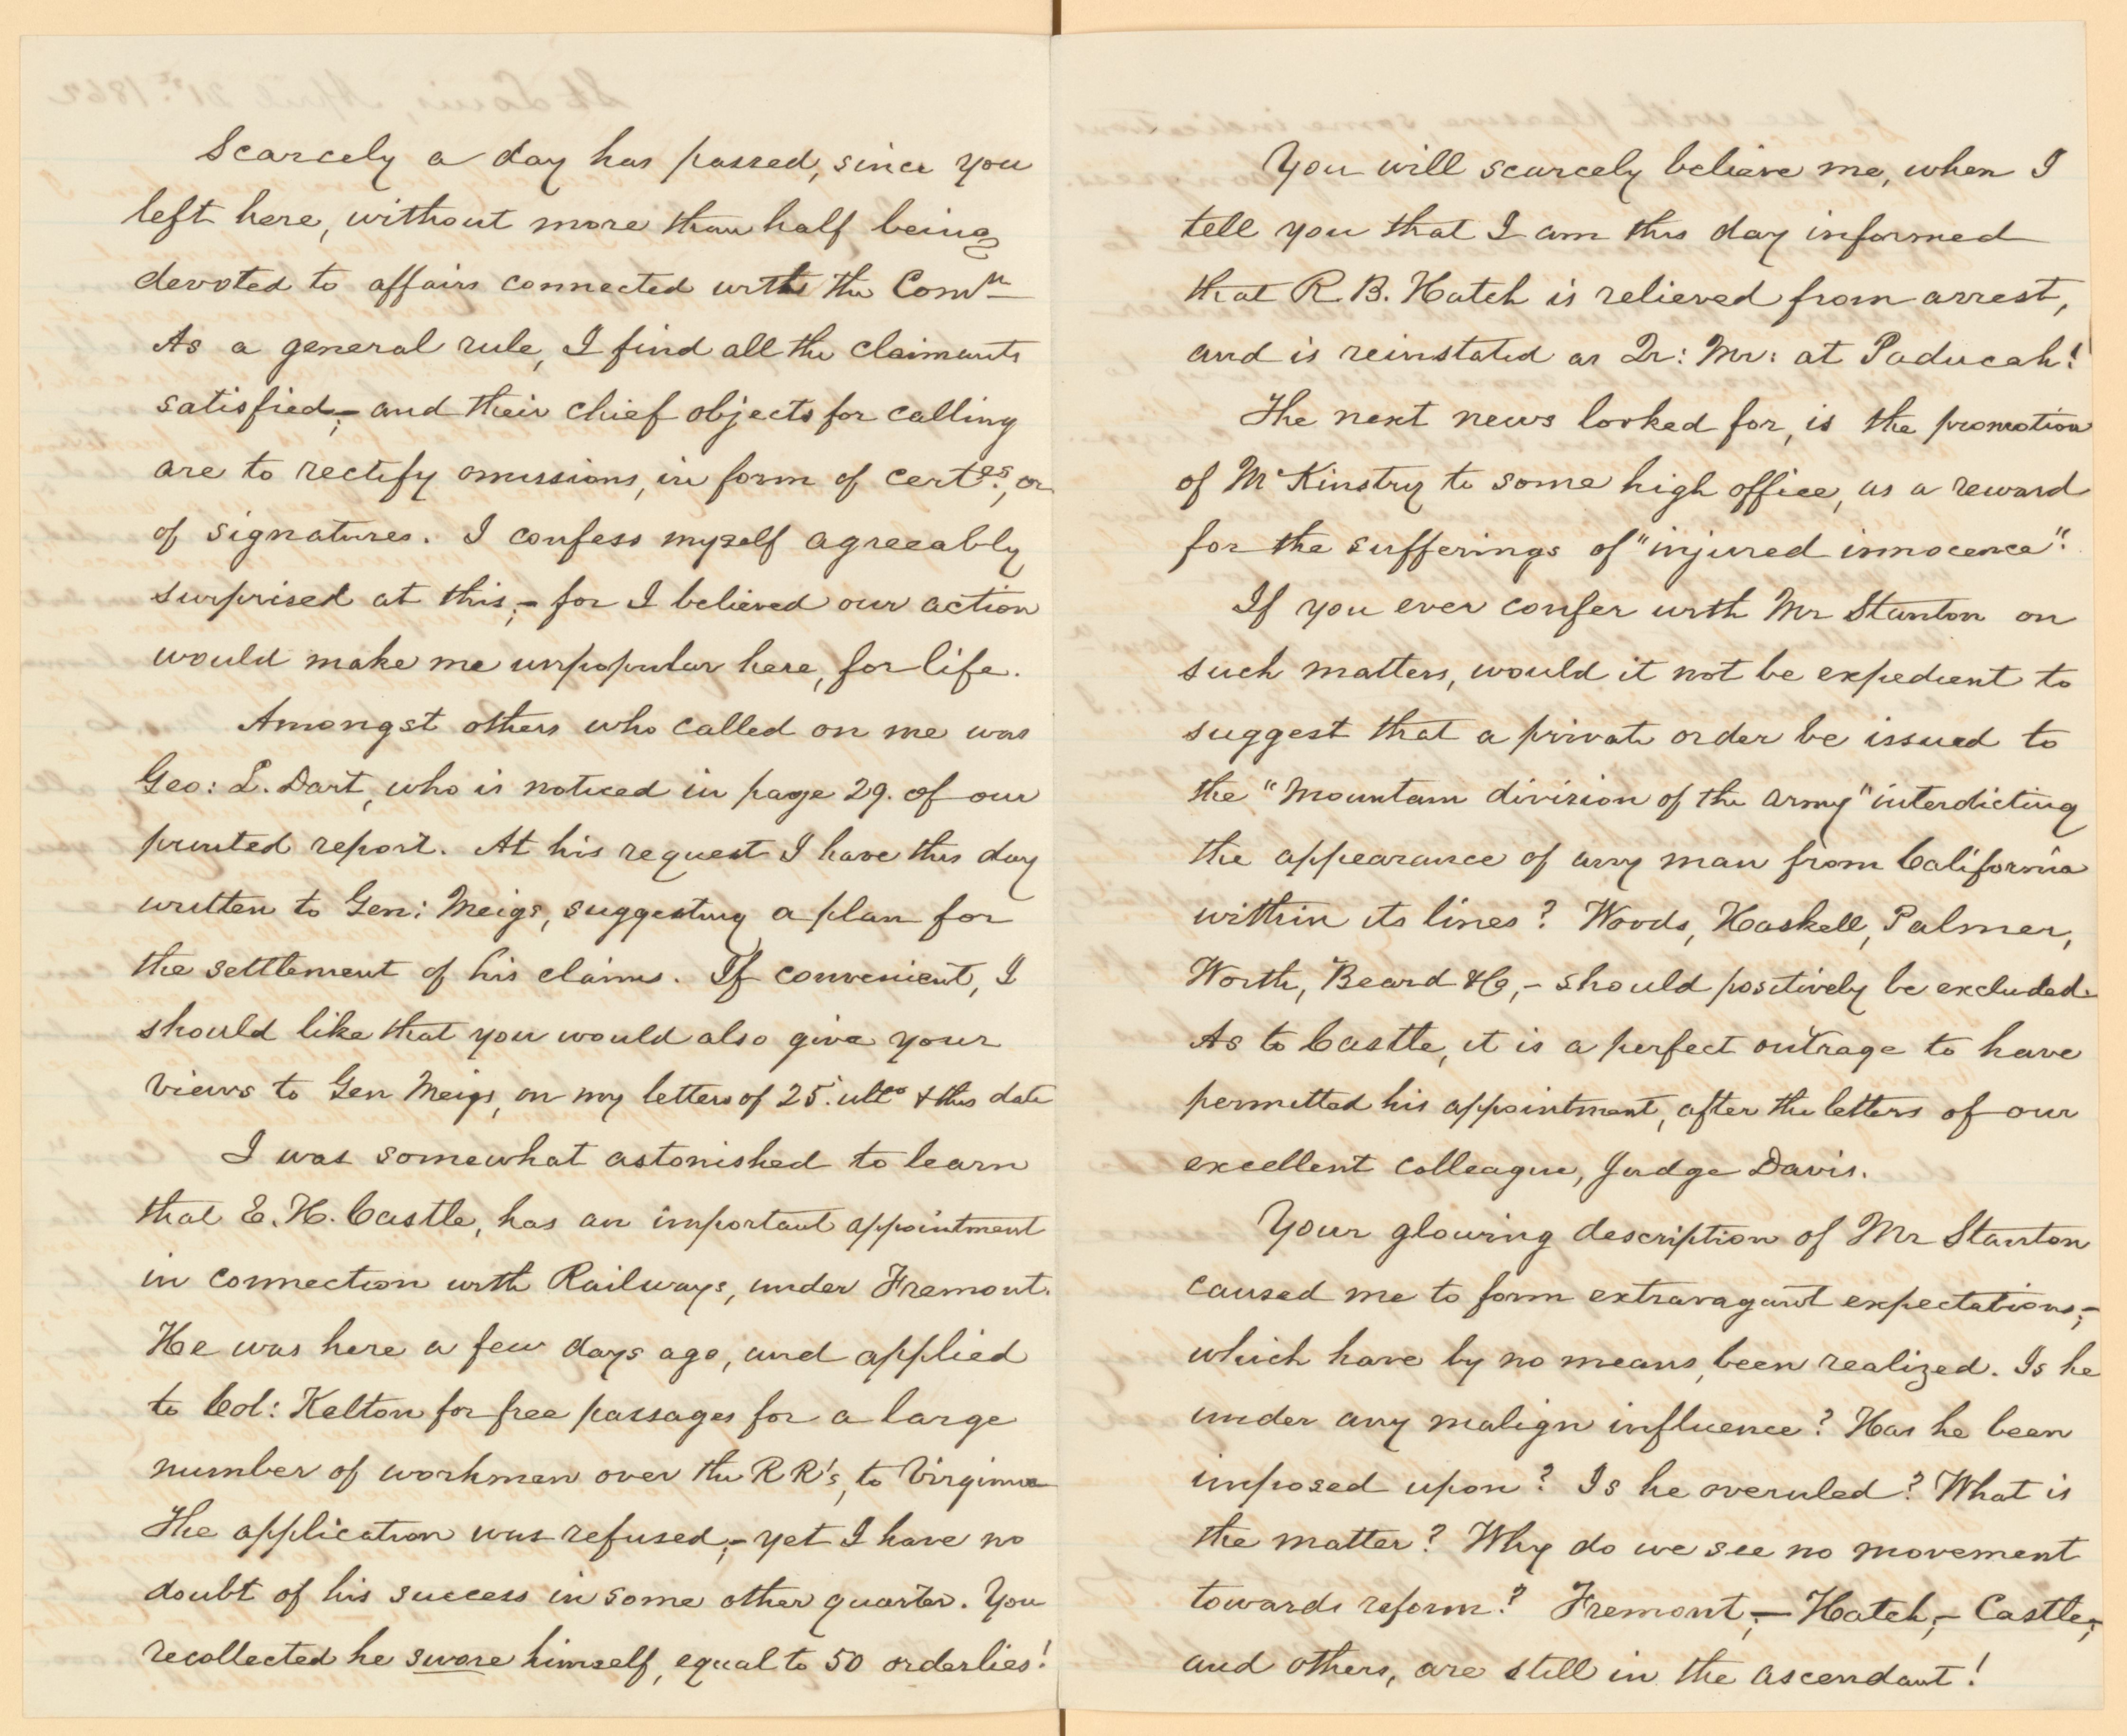 Scarcely a day has passed, since you
left here, without more than half being
devoted to affairs connected with the Comn
As a general rule, I find all the claimants
satisfied;- and their chief objects for calling
are to rectify omissions, in form of certes., or
of signatures. I confess myself agreeably
surprised at this;- for I believed our action
would make me unpopular here, for life.
Amongst others who called on me was
Geo: L. Dart, who is noticed in page 29. of our
printed report. At his request I have this day
written to Gen: Meigs, suggesting a plan for
the settlement of his claims. If convenient, I
should like that you would also give your
views to Gen Meigs, on my letters of 25. ulto & this date
I was somewhat astonished to learn
that E. H. Castle, has an important appointment
in connection with Railways, under Fremont.
He was here a few days ago, and applied
to Col: Kelton for free passages for a large
number of workmen over the RR's, to Virginia
The application was refused;- yet I have no
doubt of his success in some other quarter. You
recollected he swore himself, equal to 50 orderlies!
You will scarcely believe me, when I
tell you that I am this day informed
that R. B. Hatch is relieved from arrest,
and is reinstated as Qr: Mr: at Paducah!
The next news looked for, is the promotion
of McKinstry to some high office, as a reward
for the sufferings of "injured innocence".
If you ever confer with Mr Stanton on
such matters, would it not be expedient to
suggest that a private order be issued to
the "Mountain division of the army" interdicting
the appearance of any man from California
within its lines? Woods, Haskell, Palmer,
Worth, Beard &c,- should positively be excluded.
As to Castle, it is a perfect outrage to have
permitted his appointment, after the letters of our
excellent colleague, Judge Davis.
Your glowing description of Mr Stanton
caused me to form extravagant expectations;-
which have by no means, been realized. Is he
under any malign influence? Has he been
imposed upon? Is he overuled? What is
the matter? Why do we see no movement
towards reform? Fremont;- Hatch;- Castle;-
and others, are still in the ascendant!